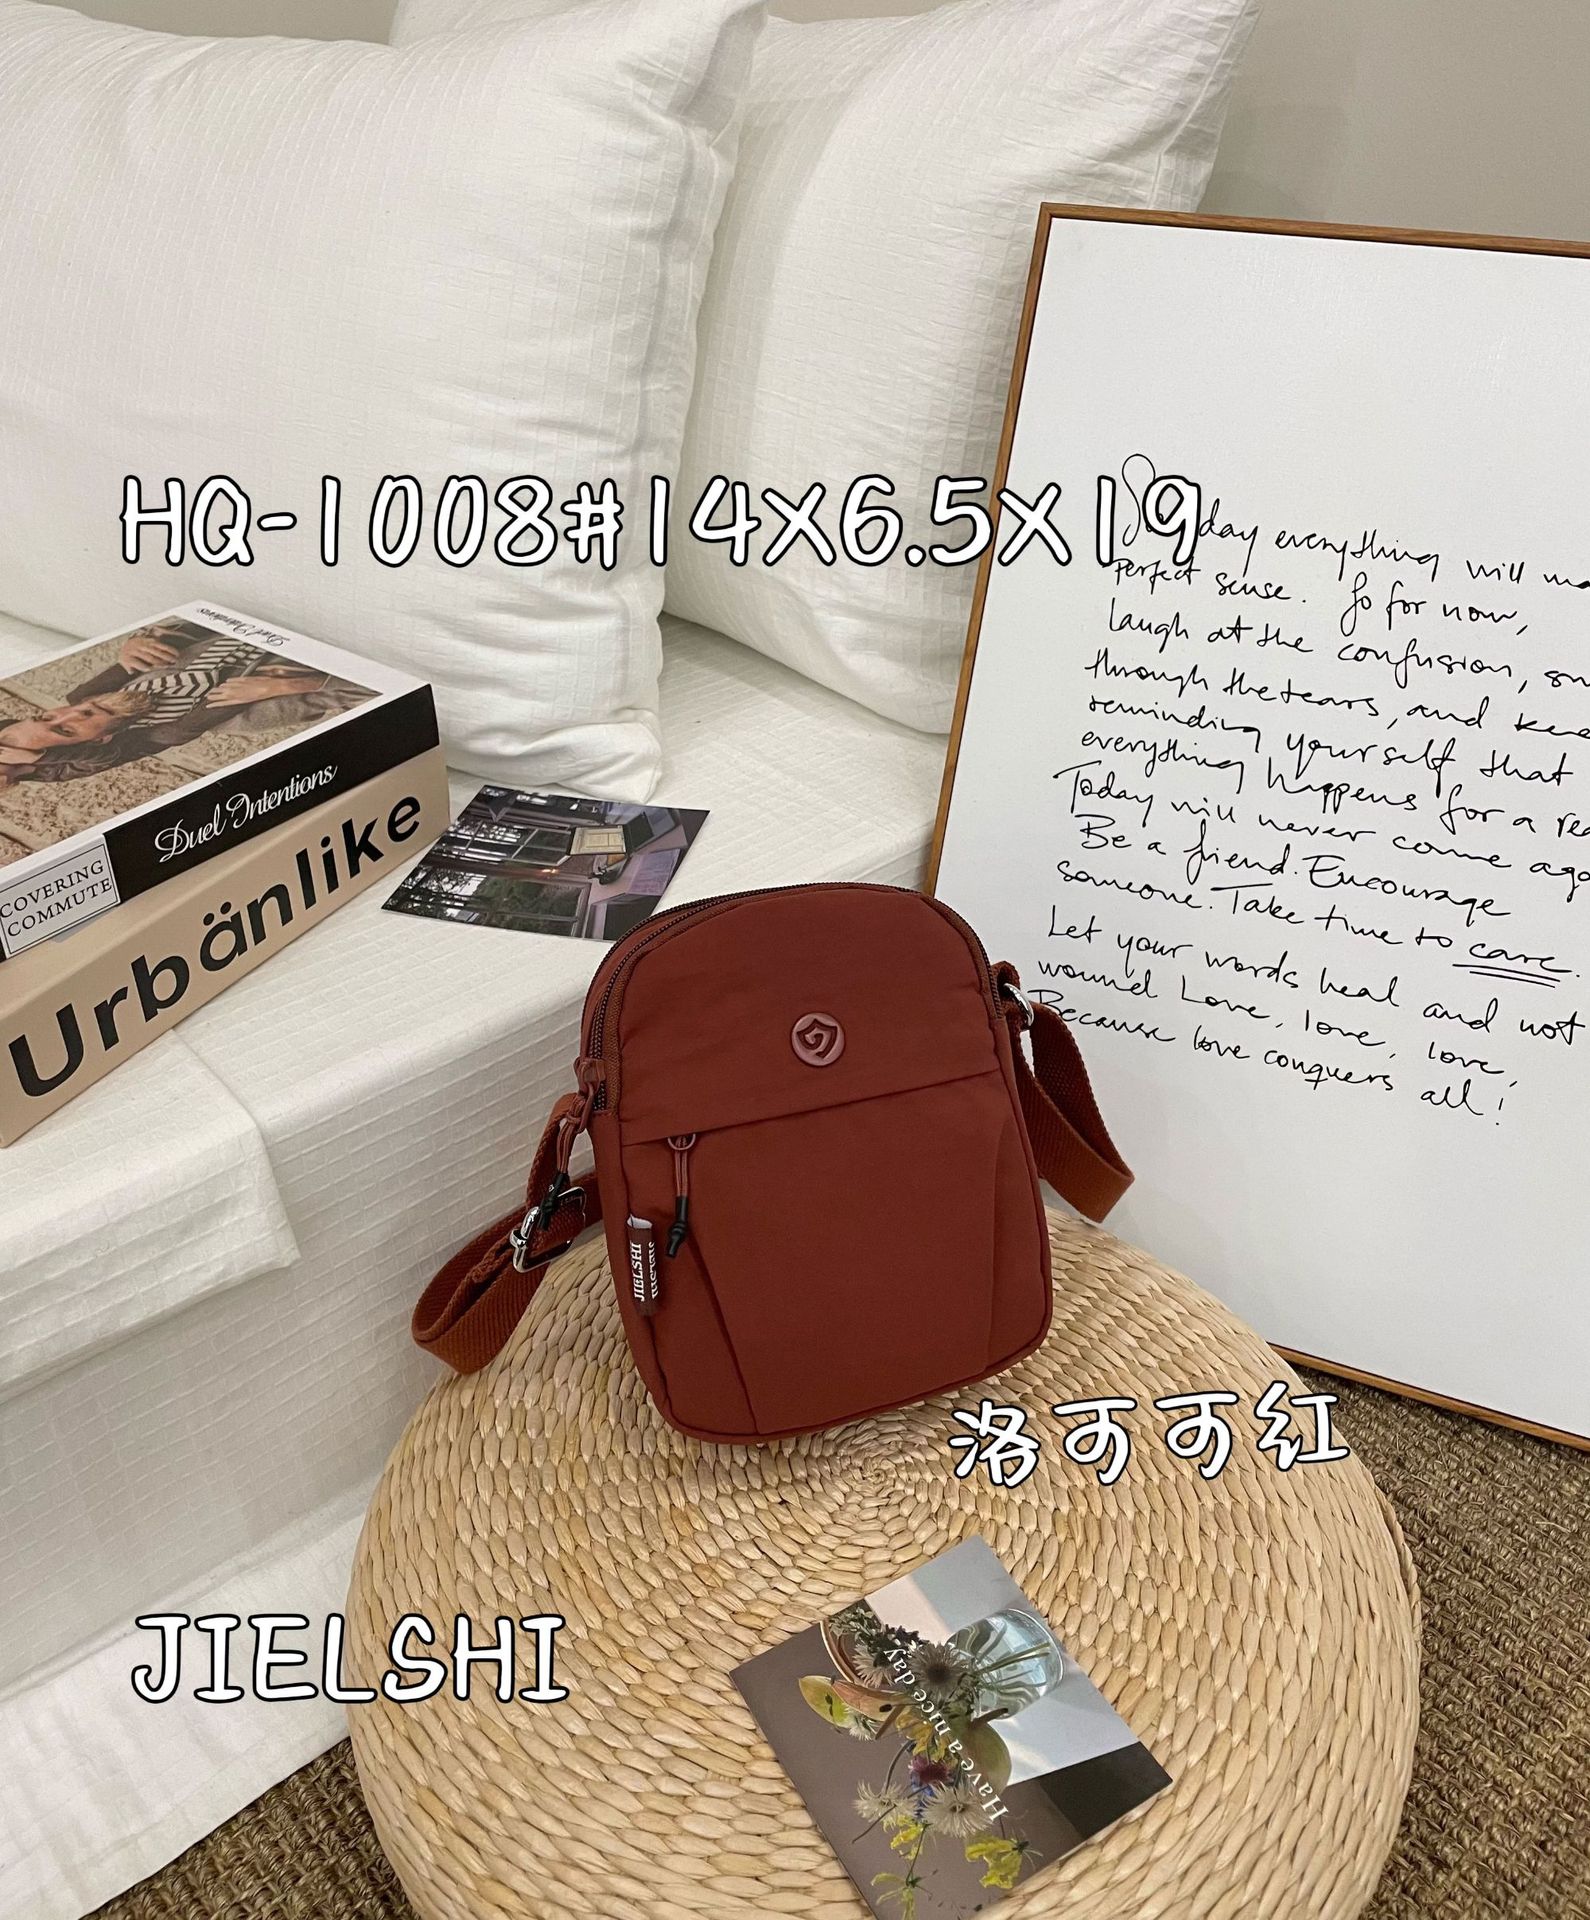 HQ-1008#14X6.5X19
Duel Intentions
Duel Intentions
COVERING
COMMUTE
Urbänlike
day everything will
perfect sense. So for now,
laugh at the confusion,
through the tears, and
reminding yourself that
everything happens for a
Today will never come
Be a friend. Encourage
someone. Take time to care.
Let your words heal and not
wound Love, love, love,
Because love conquers all!
JIELSHI
洛可可红
JIELSHI
Have a nice day